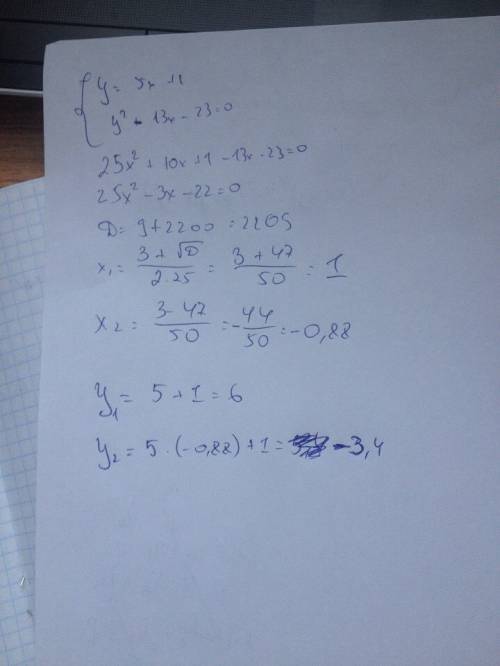 { y = 5x + 1
y² - 13x - 23 = 0
25x² + 10x + 1 - 13x - 23 = 0
25x² - 3x - 22 = 0
D = 9 + 2200 = 2209
x₁ = (3 + √D)/(2·25) = (3 + 47)/50 = 1
x₂ = (3 - 47)/50 = -44/50 = -0,88
y₁ = 5 + 1 = 6
y₂ = 5 · (-0,88) + 1 = -3,4